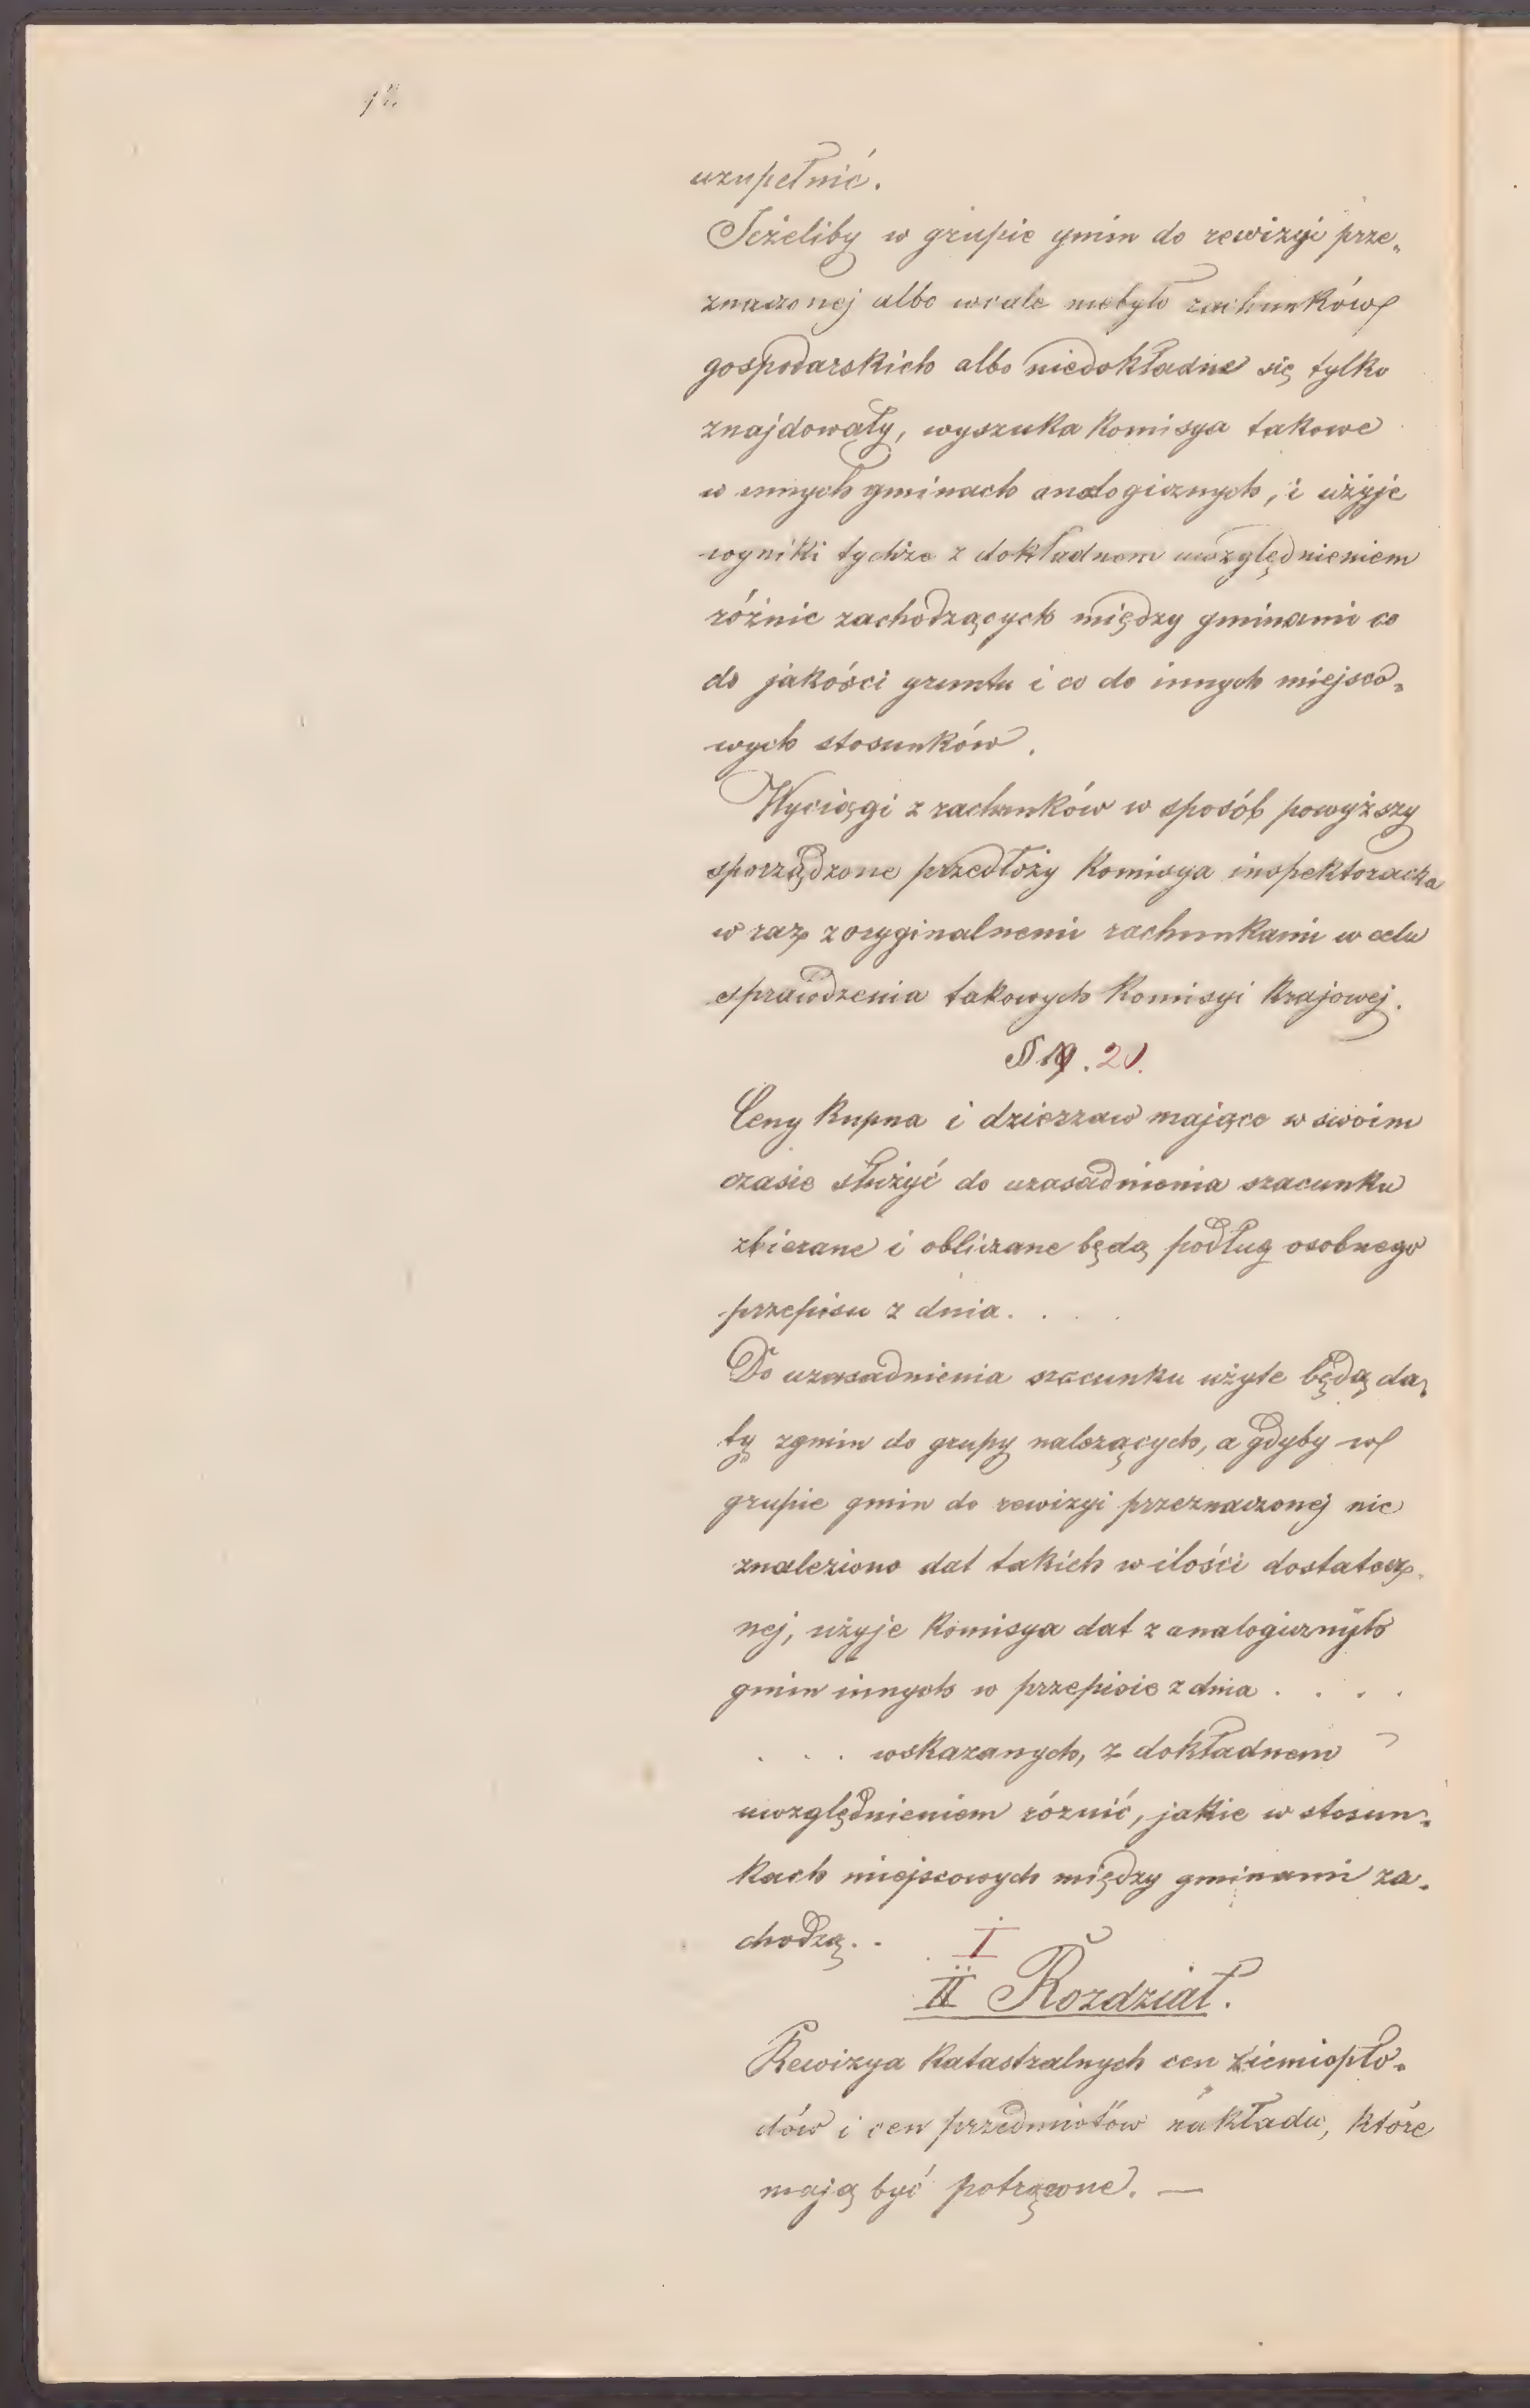 12.
uzupełnić.
Jeżeliby w grupie gmin do rewizyi prze„
znaczonej albo wcale niebyło rachunków
gospodarskich albo niedokładne się tylko
znajdowały, wyszuka Komisya takowe
w innych gminach analogicznych, i użyje
wyniki tychże z dokładnem uwzględnieniem
różnic zachodzących między gminami co
do jakości gruntu i co do innych miejsco„
wych stosunków.
Wyciągi z rachunków w sposób powyższy
sporządzone przedłoży Komisya inspektoracka
w raz z oryginalnemi rachunkami w celu
sprawdzenia takowych Komisyi Krajowej.
§ 19. 20.
Ceny Kupna i dzierzaw mające w swoim
czasie służyć do uzasadnienia szacunku
zbierane i obliczane będą podług osobnego
przepisu z dnia. . . .
Do uzasadnienia szacunku użyte będą da„
ty z gmin do grupy należących, a gdyby w
grupie gmin do rewizyi przeznaczonej nie
znaleziono dat takich w ilości dostatecz„
nej, użyje Komisya dat z analogicznych
gmin innych w przepisie z dnia . . . .
. . . wskazanych, z dokładnem
uwzględnieniem róznic, jakie w stosun„
kach miejscowych między gminami za„
chodzą. .
I
II Rozdział.
Rewizya Katastralnych cen ziemiopło„
dów i cen przedmiotów nakładu, które
mają być potrącone. —